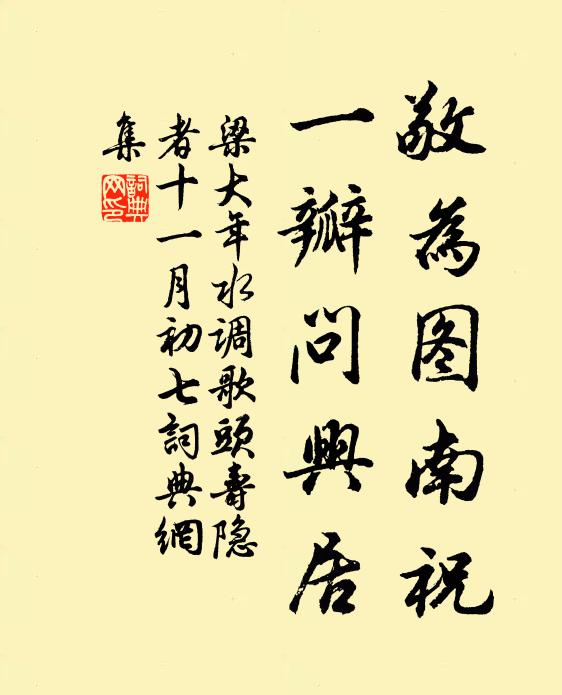 敬為图南祝
一瓣問興居
梁大年水调歌頭壽隐
者十一月初七詞典網
集
詞典
网印